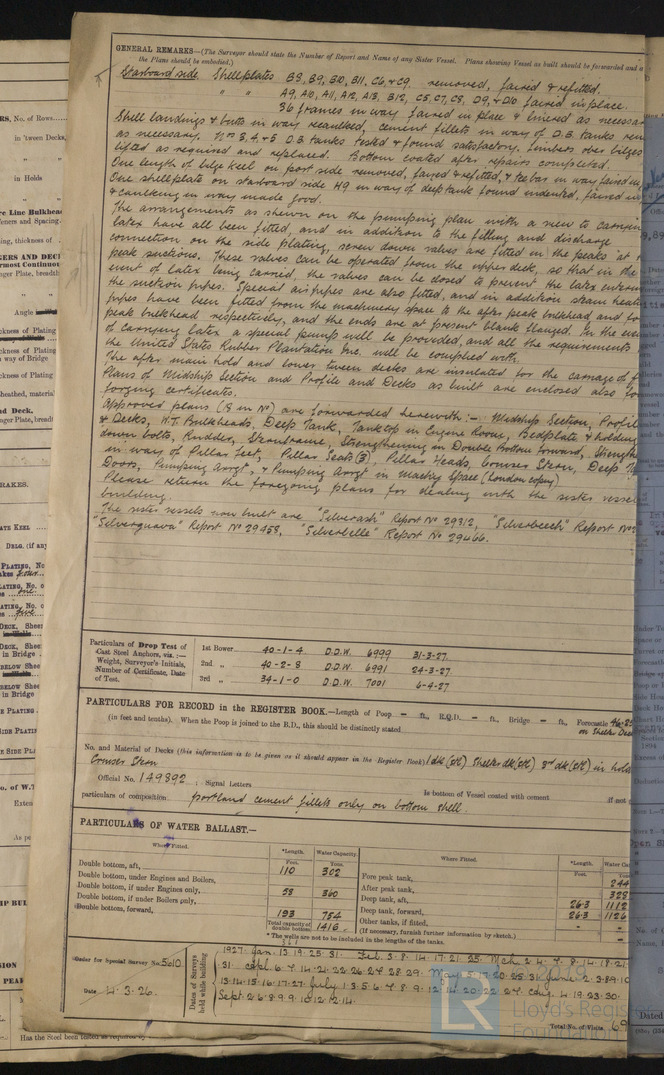 GENERAL REMARKS—(The Surveyor should state the Number of Report and Name of any Sister Vessel. Plans showing Vessel as built should be forwarded and a
the Plans should be embodied.)
Starboard side Shellplates B8, B9, B10, B11, C6, & C9 removed, faired & refitted.
" " A9, A10, A11, A12, A13, B12, C5, C7, C8, D9, & D10 faired in place.
36 frames in way faired in place & linered as necessar
Shell landings & butts in way recaulked, cement fillets in way of D.B. tanks ren
as necessary. Nos 3, 4, & 5 D.B. tanks tested & found satisfactory. Limbers over bilges
lifted as required and replaced. Bottom coated after repairs completed.
One length of bilge keel on port side removed, faired & refitted, & tee bar in way faired in
One shellplate on starboard side H9 in way of deep tank found indented, faired in
& caulking in way made good.
The arrangements as shewn on the pumping plan with a view to carryin
latex have all been fitted, and in addition to the filling and discharge
connection on the side plating, screw down valves are fitted in the peaks at
peak suctions. These valves can be operated from the upper deck, so that in the
event of latex being carried, the valves can be closed to prevent the latex enterin
the suction pipes. Special air pipes are also fitted, and in addition steam heatin
pipes have been fitted from the machinery space to the after peak bulkhead and
peak bulkhead respectively, and the ends are at present blank flanged. In the eve
of carrying latex a special pump will be provided, and all the requirements
the United States Rubber Plantation Inc. will be complied with.
The after main hold and lower tween decks are insulated for the carriage of f
Plans of Midship Section and Profile and Decks as built are enclosed also
forging certificates.
Approved plans (18 in No) are forwarded herewith :- Midship Section, Profil
& Decks, W.T. Bulkheads, Deep Tank, Tanktop in Engine Room, Bedplate & holding
down bolts, Rudder, Sternframe, Strengthening in Double Bottom forward, Strength
in way of Pillar Feet, Pillar Seats (3), Pillar Heads, Cruiser Stern, Deep T
Doors, Pumping Arrgt, & Pumping Arrgt in Machy Space (London copy)
Please return the foregoing plans for dealing with the sister vessel
building.
The sister vessels now built are "Silverash" Report No 29312, "Silverbeech" Report No 2
"Silverguava" Report No 29458, "Silverbelle" Report No 29466.
Particulars of Drop Test of
Cast Steel Anchors, viz. :—
Weight, Surveyor's Initials,
Number of Certificate, Date
of Test.
1st Bower 40-1-4 D.D.W. 6999 31-3-27
2nd " 40-2-8 D.D.W. 6991 24-3-27
3rd " 34-1-0 D.D.W. 7001 6-4-27
PARTICULARS FOR RECORD in the REGISTER BOOK.—Length of Poop - ft., R.Q.D. - ft., Bridge - ft., Forecastle 46.25
(in feet and tenths). When the Poop is joined to the B.D., this should be distinctly stated on Shelter Deck
No. and Material of Decks (this information is to be given as it should appear in the Register Book) 1 dk (stl) Shelter dk (stl) 3rd dk (stl) in hold
Cruiser Stern
Official No. 149892 ; Signal Letters
Is bottom of Vessel coated with cement
If not
particulars of composition Portland cement fillets only on bottom shell.
PARTICULARS OF WATER BALLAST.—
Where Fitted. *Length. Water Capacity. Where Fitted. *Length. Water Ca
Feet. Tons. Feet. Tons
Double bottom, aft, 110 302
Double bottom, under Engines and Boilers,
Double bottom, if under Engines only, 58 360
Double bottom, if under Boilers only,
Double bottom, forward, 193 754
Total capacity of double bottom 1416
Fore peak tank, 244
After peak tank, 328
Deep tank, aft, 26.3 1112
Deep tank, forward, 26.3 1126
Other tanks, if fitted, - -
(If necessary, furnish further information by sketch.)
* The wells are not to be included in the lengths of the tanks.
361
Order for Special Survey No. 5010
Date 4.3.26.
Dates of Surveys
held while building
1927. Jan. 13. 19. 25. 31. Feb. 3. 8. 14. 17. 21. 25. Mch. 2. 4. 7. 8. 14. 18. 21.
31. Apl. 6. 7. 14. 21. 22. 26. 27. 28. 29. May 5. 17. 20. 25. 31. June. 2. 3. 8. 9. 10.
13. 14. 15. 16. 17. 27. July 1. 3. 5. 6. 7. 8. 9. 12. 14. 20. 22. 27. Aug. 4. 19. 23. 30.
Sept. 2. 6. 8. 9. 9. 10. 12. 12. 14.
Total No. of Visits 69
2019
LR
Lloyd's Register
Foundation